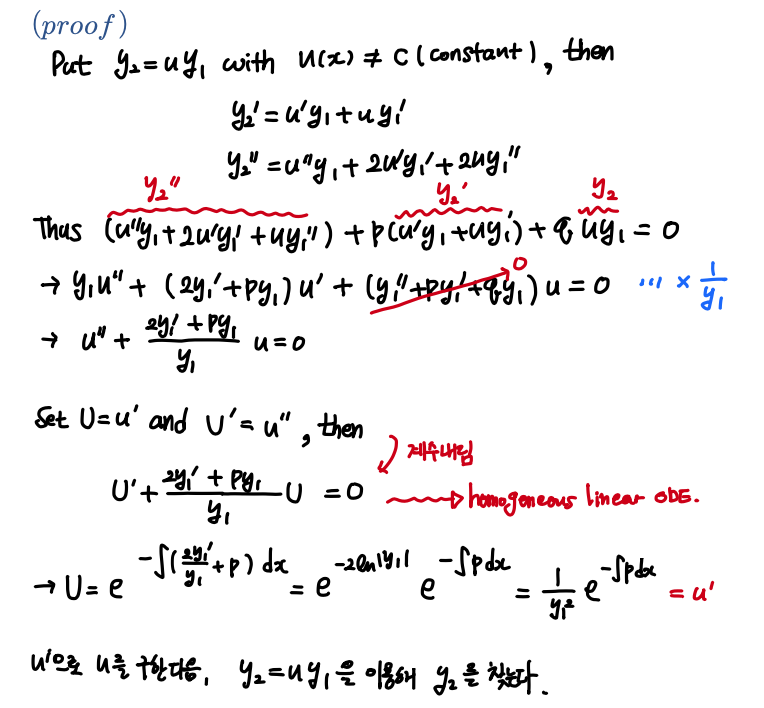 (proof)
Put y₂ = u y₁ with u(x) ≠ C (constant), then
y₂' = u'y₁ + u y₁'
y₂'' = u''y₁ + 2u'y₁' + 2uy₁''
y₂'' y₂' y₂
Thus (u''y₁ + 2u'y₁' + uy₁'') + p(u'y₁ + uy₁') + q uy₁ = 0
→ y₁u'' + (2y₁' + py₁) u' + (y₁'' + py₁' + qy₁) u = 0 0 ... × 1/y₁
→ u'' + (2y₁' + py₁)/y₁ u = 0
Set U = u' and U' = u'', then
계수내림
U' + (2y₁' + py₁)/y₁ U = 0 → homogeneous linear ODE.
→ U = e^(-∫(2y₁'/y₁ + p) dx) = e^(-2ln|y₁|) e^(-∫pdx) = 1/y₁² e^(-∫pdx) = u'
u'으로 u를 구한다음, y₂ = uy₁을 이용해 y₂를 찾는다.